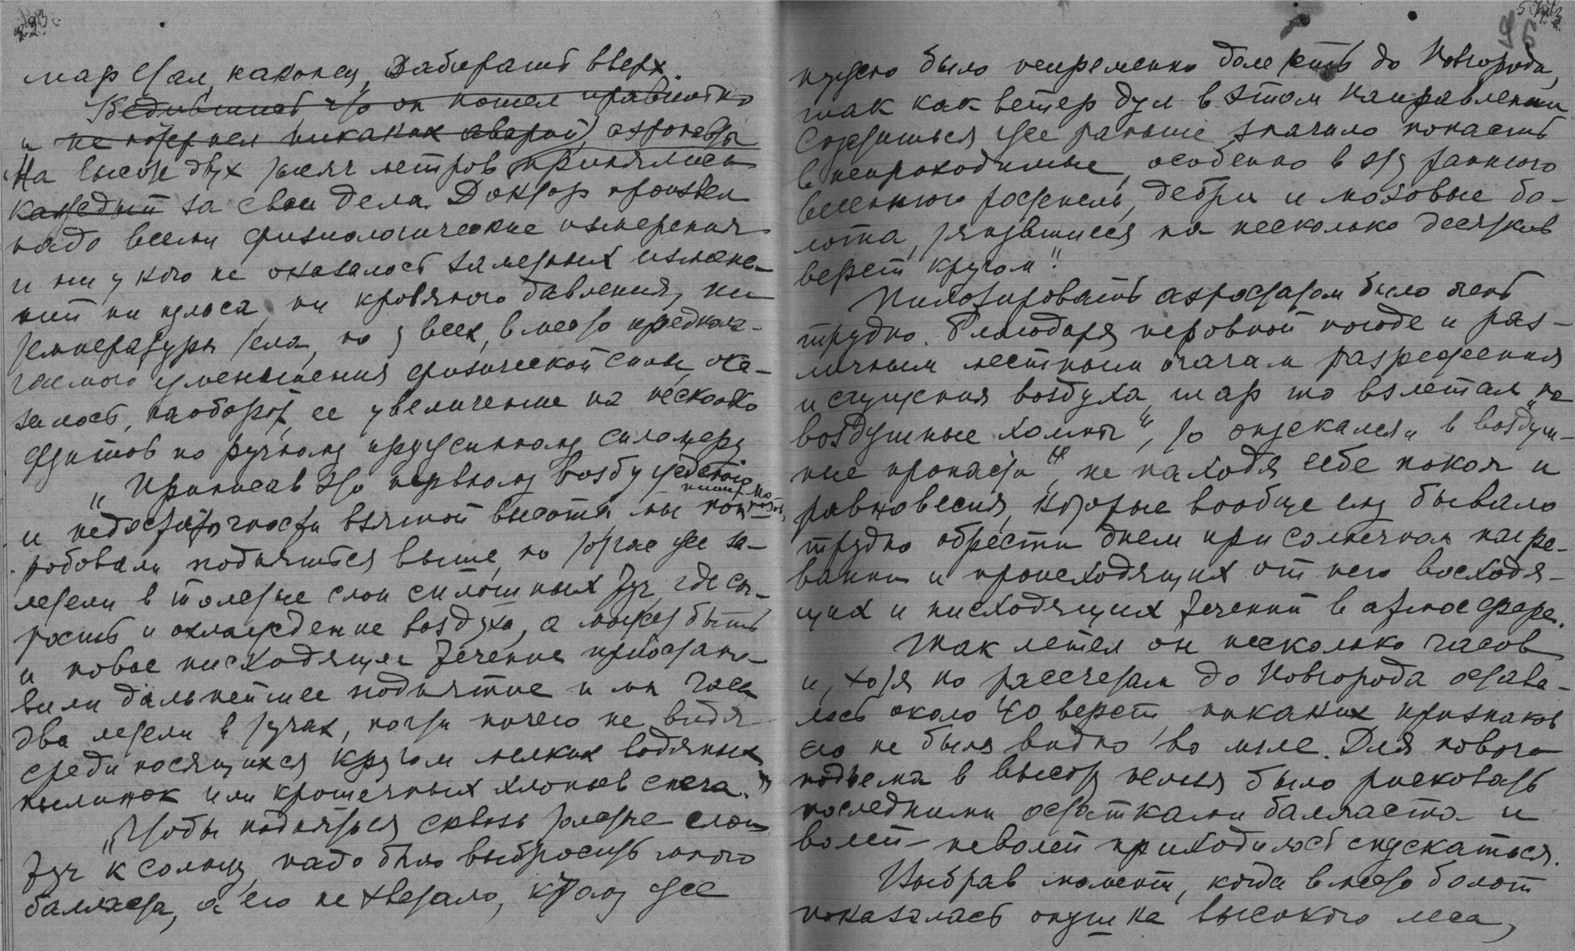 шар стал, наконец, забирать вверх.
Убедившись что он пошел правильно
и не потерпел никаких аварий, аэронавты
На высоте двух тысяч метров принялись
каждый за свои дела. Доктор произвел
надо всеми физиологические измерения
и ни у кого не оказалось заметных измене-
ний ни пульса, ни кровяного давления, ни
температуры тела, но у всех, вместо предпола-
гаемого уменьшения физической силы, ока-
залось, наоборот, ее увеличение на несколько
фунтов по ручному пружинному силомеру
„Приписав это нервному возбуждению
и недостаточности взятой высоты мы поп-
робовали подняться выше, но тотчас же за-
летели в толстые слои сплошных туч, где сы-
рость и охлаждение воздуха, а может быть
и новое нисходящее течение приостано-
вили дальнейшее поднятие и мы часа
два летели в тучах, почти ничего не видя
среди носящихся кругом мелких водяных
пылинок или крошечных хлопьев снега."
„Чтобы подняться сквозь толстые слои
туч к солнцу, надо было выбросить много
балласта, а его не хватало, к тому же
нужно было непременно долететь до Новгорода,
так как ветер дул в этом направлении
Спуститься же раньше значило попасть
в непроходимые, особенно в эту раннюю
весеннюю ростепель, дебри и моховые бо-
лота, тянувшиеся на несколько десятков
верст кругом"
Пилотировать аэростатом было очень
трудно. Благодаря неровной погоде и раз-
личным местным очагам разрежения
и сгущения воздуха шар то взлетал „на
воздушные холмы", то опускался „в воздуш-
ные пропасти", не находя себе покоя и
равновесия, которые вообще ему бывало
трудно обрести днем при солнечном нагре-
вании и происходящих от него восходя-
щих и нисходящих течений в атмосфере.
Так летел он несколько часов
и, хотя по рассчетам до Новгорода остава-
лось около 40 верст, никаких признаков
его не было видно во мгле. Для нового
подъема в высоту нельзя было рисковать
последними остатками балласта и
волей-неволей приходилось спускаться.
Выбрав момент, когда вместо болот
показалась опушка высокого леса,